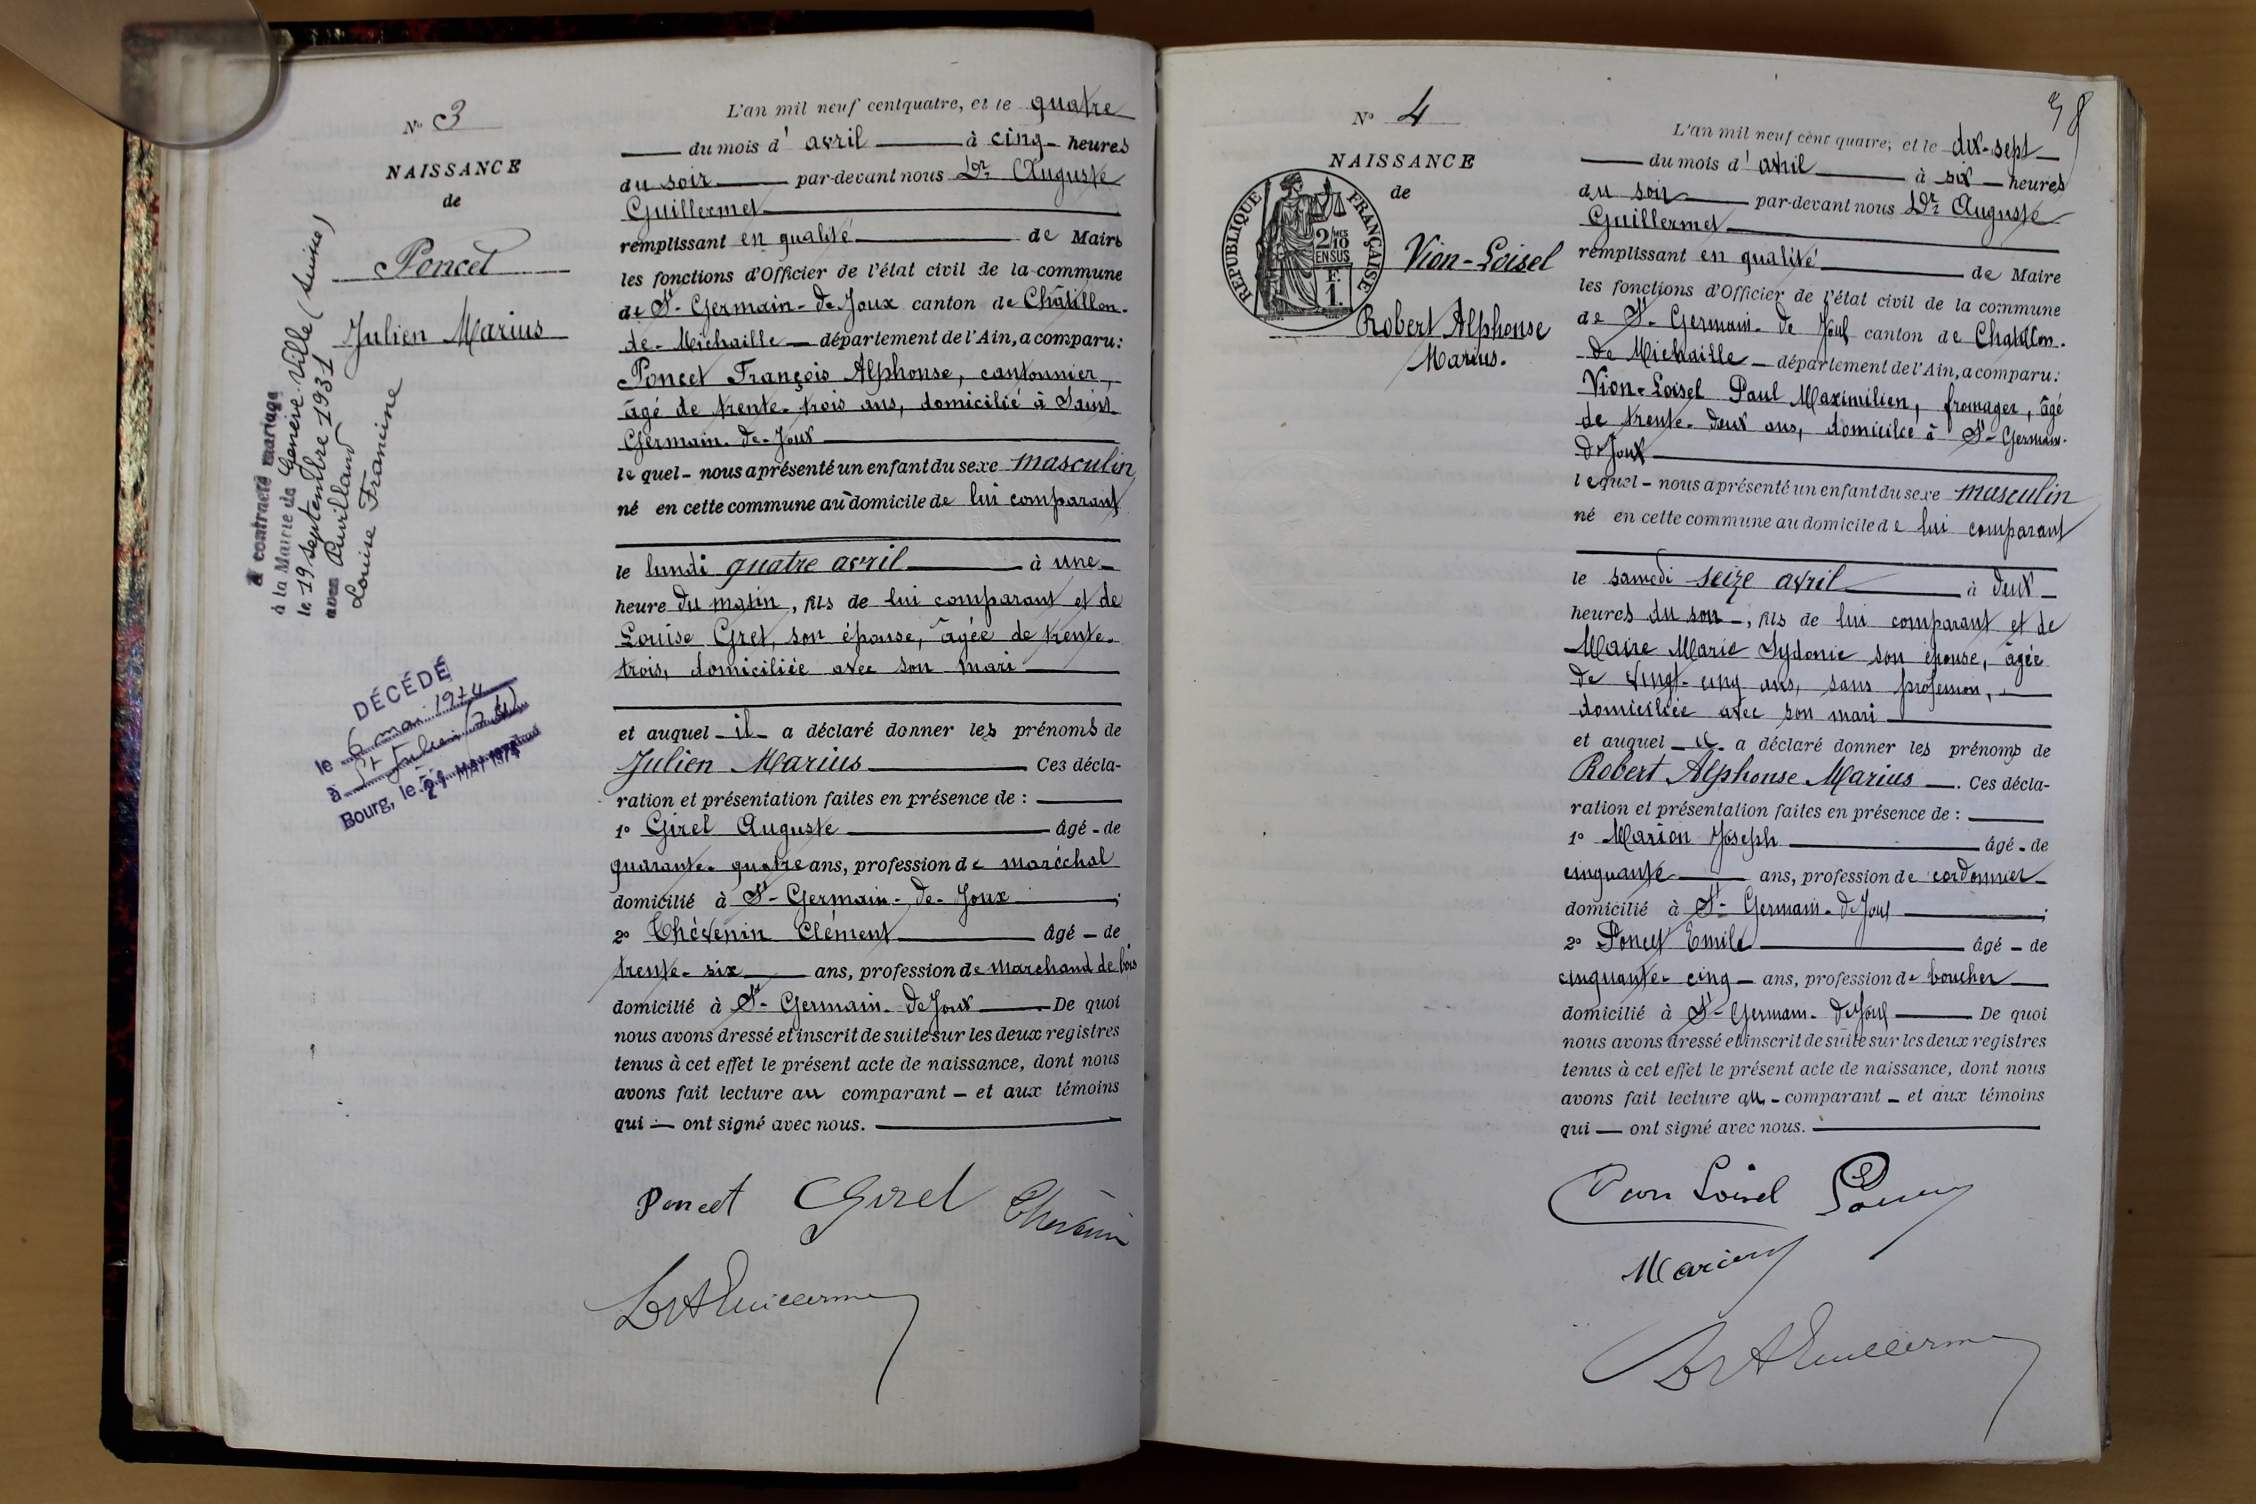 N° 3
NAISSANCE
de
Poncet
Julien Marius
a contracté mariage
à la Mairie de Genève-Ville (Suisse)
le 19 septembre 1931
avec
Louise Francine
DÉCÉDÉ
le 6 mai 1974
à St Julien (74)
Bourg, le MAI 1974
L'an mil neuf cent quatre, et le quatre
du mois d' avril à cinq heures
du soir par-devant nous Dr Auguste
Guillermet
remplissant en qualité de Maire
les fonctions d'Officier de l'état civil de la commune
de St-Germain-de-Joux canton de Châtillon-
de-Michaille département de l'Ain, a comparu:
Poncet François Alphonse, cantonnier,
âgé de trente-trois ans, domicilié à Saint-
Germain-de-Joux
le quel nous a présenté un enfant du sexe masculin
né en cette commune au domicile de lui comparant
le lundi quatre avril à une
heure du matin, fils de lui comparant et de
Louise Gret, son épouse, âgée de trente-
trois, domiciliée avec son mari
et auquel il a déclaré donner les prénoms de
Julien Marius Ces décla-
ration et présentation faites en présence de :
1° Girel Auguste âgé de
quarante-quatre ans, profession de maréchal
domicilié à St-Germain-de-Joux ;
2° Thévenin Clément âgé de
trente-six ans, profession de marchand de bois
domicilié à St-Germain-de Joux De quoi
nous avons dressé et inscrit de suite sur les deux registres
tenus à cet effet le présent acte de naissance, dont nous
avons fait lecture au comparant et aux témoins
qui ont signé avec nous.
Poncet Girel Thévenin
Dr A Guillermet
38
N° 4
NAISSANCE
de
RÉPUBLIQUE FRANÇAISE
2/10
MES
EN SUS
F.
1.
Vion-Loisel
Robert Alphonse
Marius.
L'an mil neuf cent quatre, et le dix-sept
du mois d' avril à six heures
du soir par-devant nous Dr Auguste
Guillermet
remplissant en qualité de Maire
les fonctions d'Officier de l'état civil de la commune
de St-Germain-de Joux canton de Chatillon-
de Michaille département de l'Ain, a comparu:
Vion-Loisel Paul Maximilien, fromager, âgé
de trente-deux ans, domicilié à St-Germain-
de Joux
le quel nous a présenté un enfant du sexe masculin
né en cette commune au domicile de lui comparant
le samedi seize avril à deux
heures du soir, fils de lui comparant et de
Maire Marie Sydonie son épouse, âgée
de vingt-cinq ans, sans profession,
domiciliée avec son mari
et auquel il a déclaré donner les prénoms de
Robert Alphonse Marius . Ces décla-
ration et présentation faites en présence de :
1° Marion Joseph âgé de
cinquante ans, profession de cordonnier
domicilié à St-Germain-de Joux ;
2° Poncet Emile âgé de
cinquante-cinq ans, profession de boucher
domicilié à St-Germain-de Joux De quoi
nous avons dressé et inscrit de suite sur les deux registres
tenus à cet effet le présent acte de naissance, dont nous
avons fait lecture au comparant et aux témoins
qui ont signé avec nous.
Vion Loisel Poncet
Marion
Dr A Guillermet